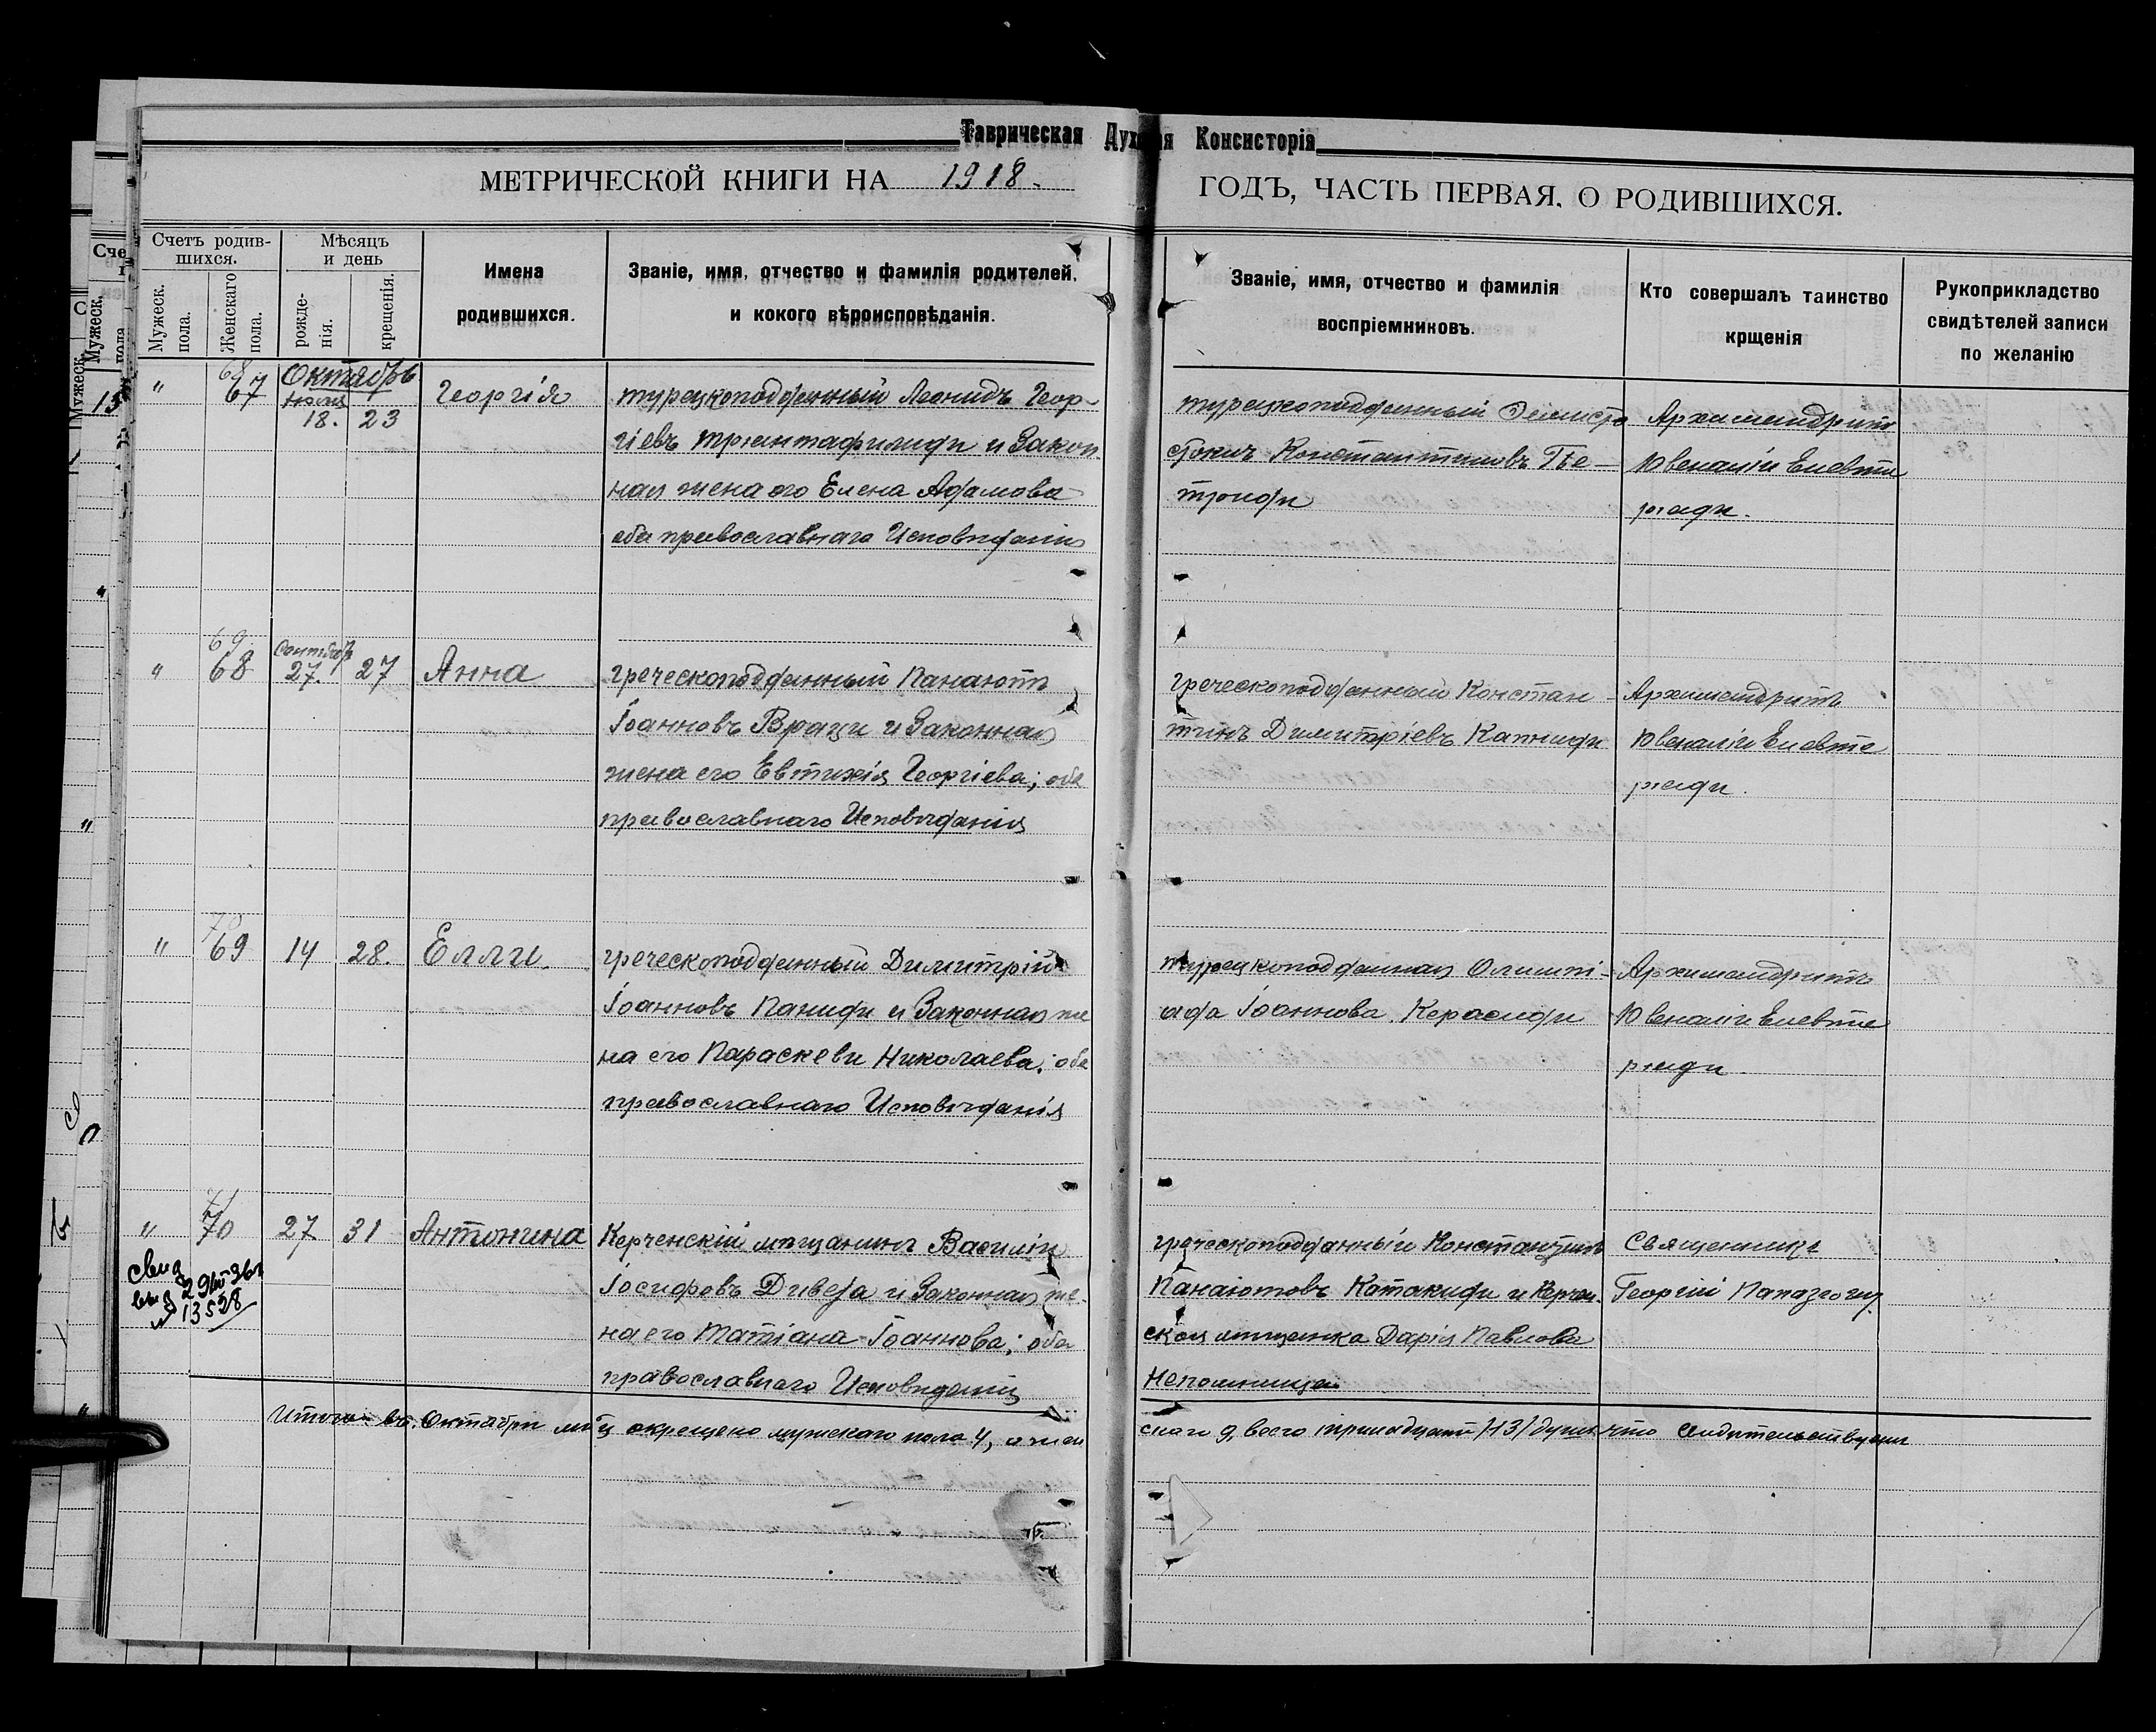 Таврическая Духовная Консисторія
МЕТРИЧЕСКОЙ КНИГИ НА 1918. ГОДЪ, ЧАСТЬ ПЕРВАЯ, О РОДИВШИХСЯ.
Счетъ родив-
шихся.
Мужеск.
пола.
Женскаго
пола.
Мѣсяцъ
и день
рожде-
нія.
крещенія.
Имена
родившихся.
Званіе, имя, отчество и фамилія родителей,
и кокого вѣроисповѣданія.
Званіе, имя, отчество и фамилія
воспріемниковъ.
Кто совершалъ таинство
крщенія
Рукоприкладство
свидѣтелей записи
по желанію
Октябрь
68
" 67 18. 23 Георгія
турецкоподданный Леонидъ Геор-
гіевъ Тріантафилиди и Закон
ная жена его Елена Адамова
оба православнаго Исповѣданія
турецкоподданный
Константиновъ Пе-
триди
Архимандритъ
Ювеналій Елевте
ріади.
69
" 68 Сентября 27. 27 Анна
греческоподданный Панаіотъ
Іоанновъ Враци и Законная
жена его Евтихія Георгіева; оба
православнаго Исповѣданія
греческоподданный Констан-
тинъ Димитріевъ Капниди
Архимандритъ
Ювеналій Елевте
ріади.
70
" 69 14 28. Елли.
греческоподданный Димитрій
Іоанновъ Паниди и Законная же
на его Параскеви Николаева; оба
православнаго Исповѣданія
турецкоподданная Олимпі-
ада Іоаннова Керасиди
Архимандритъ
Ювеналій Елевте
ріади.
71
" 70 27 31 Антонина
Керченскій мѣщанинъ Василій
Іосифовъ Дивеја и Законная же-
на его Татіана Іоаннова; оба
православнаго Исповѣданія
греческоподданный Константинъ
Панаіотовъ Катакиди и Керчен-
ская мѣщанка Дарія Павлова
Непомнящая
Священникъ
Георгій Папазоглу
13528
Итого въ Октябрѣ м-цѣ окрещено мужскаго пола 4, а жен
скаго 9, всего тринадцать /13/ душъ что свидѣтельствуемъ